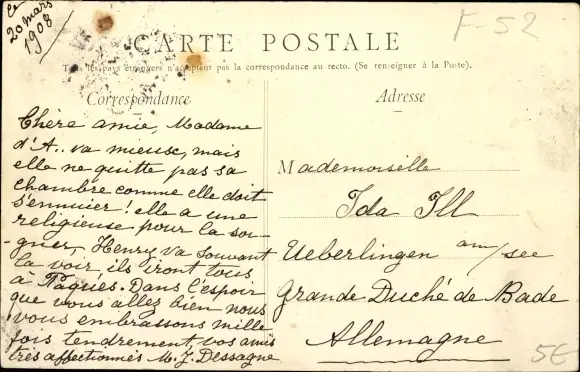 Le
20 mars
1908
F-52
CARTE POSTALE
Tous les pays étrangers n'acceptent pas la correspondance au recto. (Se renseigner à la Poste).
Correspondance
Adresse
Chère amie, Madame
d'A.. va mieux, mais
elle ne quitte pas sa
chambre comme elle doit
s'ennuier! elle a une
religieuse pour la soi-
-gner, Henry va souvant
la voir, ils iront tous
à Pâques. Dans l'espoir
que vous allez bien nous
vous embrassons mille
fois tendrement, vos amis
très affectionnés M. J. Dessagne
Mademoiselle
Ida Ill
Ueberlingen am/see
Grande-Duché de Bade
Allemagne
5€